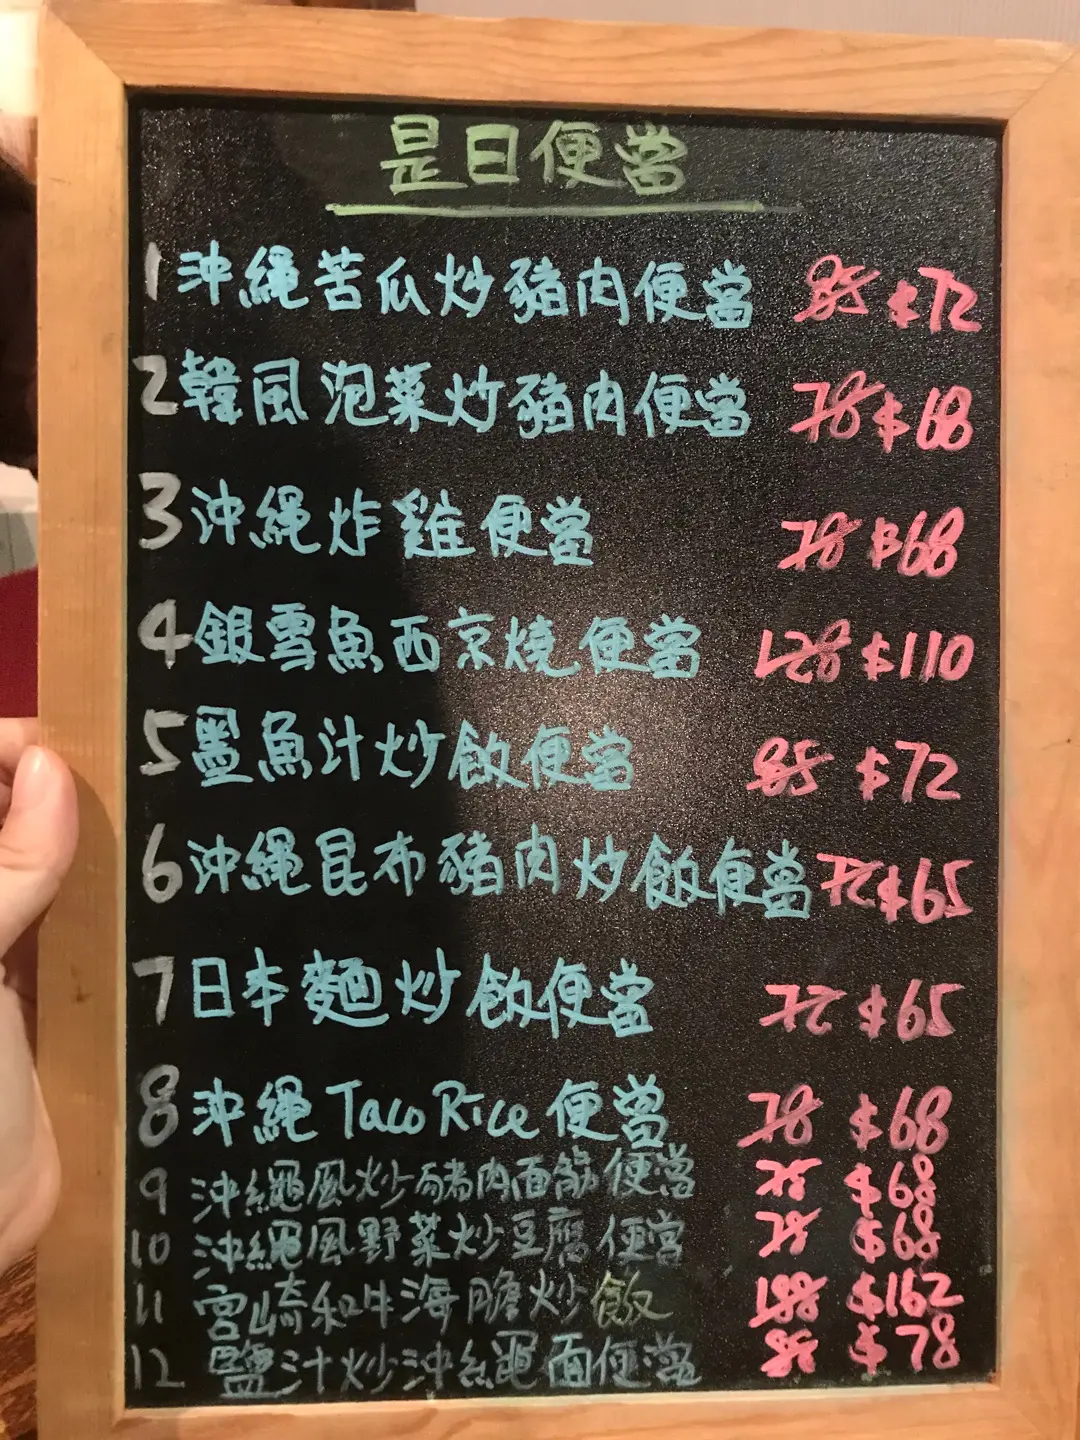 是日便當
1 沖繩苦瓜炒豬肉便當 85 $72
2 韓風泡菜炒豬肉便當 78 $68
3 沖繩炸雞便當 78 $68
4 銀雪魚西京燒便當 128 $110
5 墨魚汁炒飯便當 85 $72
6 沖繩昆布豬肉炒飯便當 72 $65
7 日本麵炒飯便當 72 $65
8 沖繩Taco Rice便當 78 $68
9 沖繩風炒豬肉面筋便當 78 $68
10 沖繩風野菜炒豆腐便當 78 $68
11 宮崎和牛海膽炒飯 188 $162
12 鹽汁炒沖繩面便當 85 $78